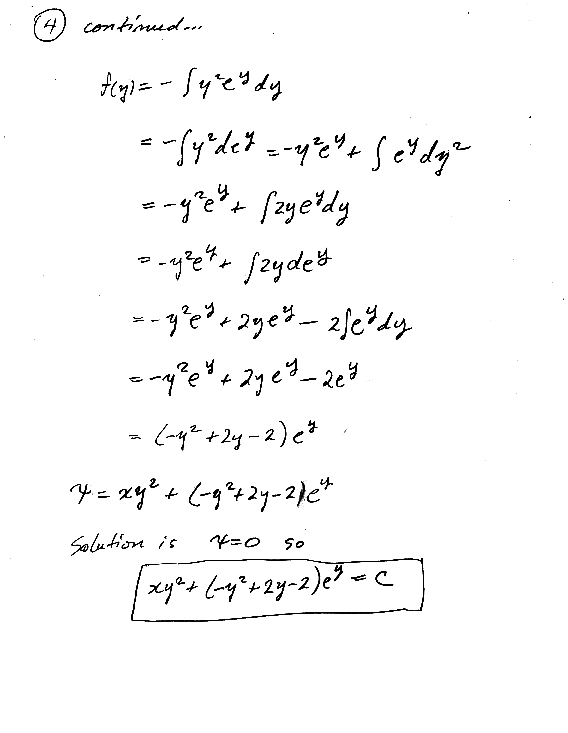 ④ continued...
f(y) = - ∫y²e^y dy
= -∫y²de^y = -y²e^y + ∫e^y dy²
= -y²e^y + ∫2ye^y dy
= -y²e^y + ∫2yde^y
= -y²e^y + 2ye^y - 2∫e^y dy
= -y²e^y + 2ye^y - 2e^y
= (-y² + 2y - 2)e^y
Ψ = xy² + (-y² + 2y - 2)e^y
Solution is Ψ=0 so
xy² + (-y² + 2y - 2)e^y = C